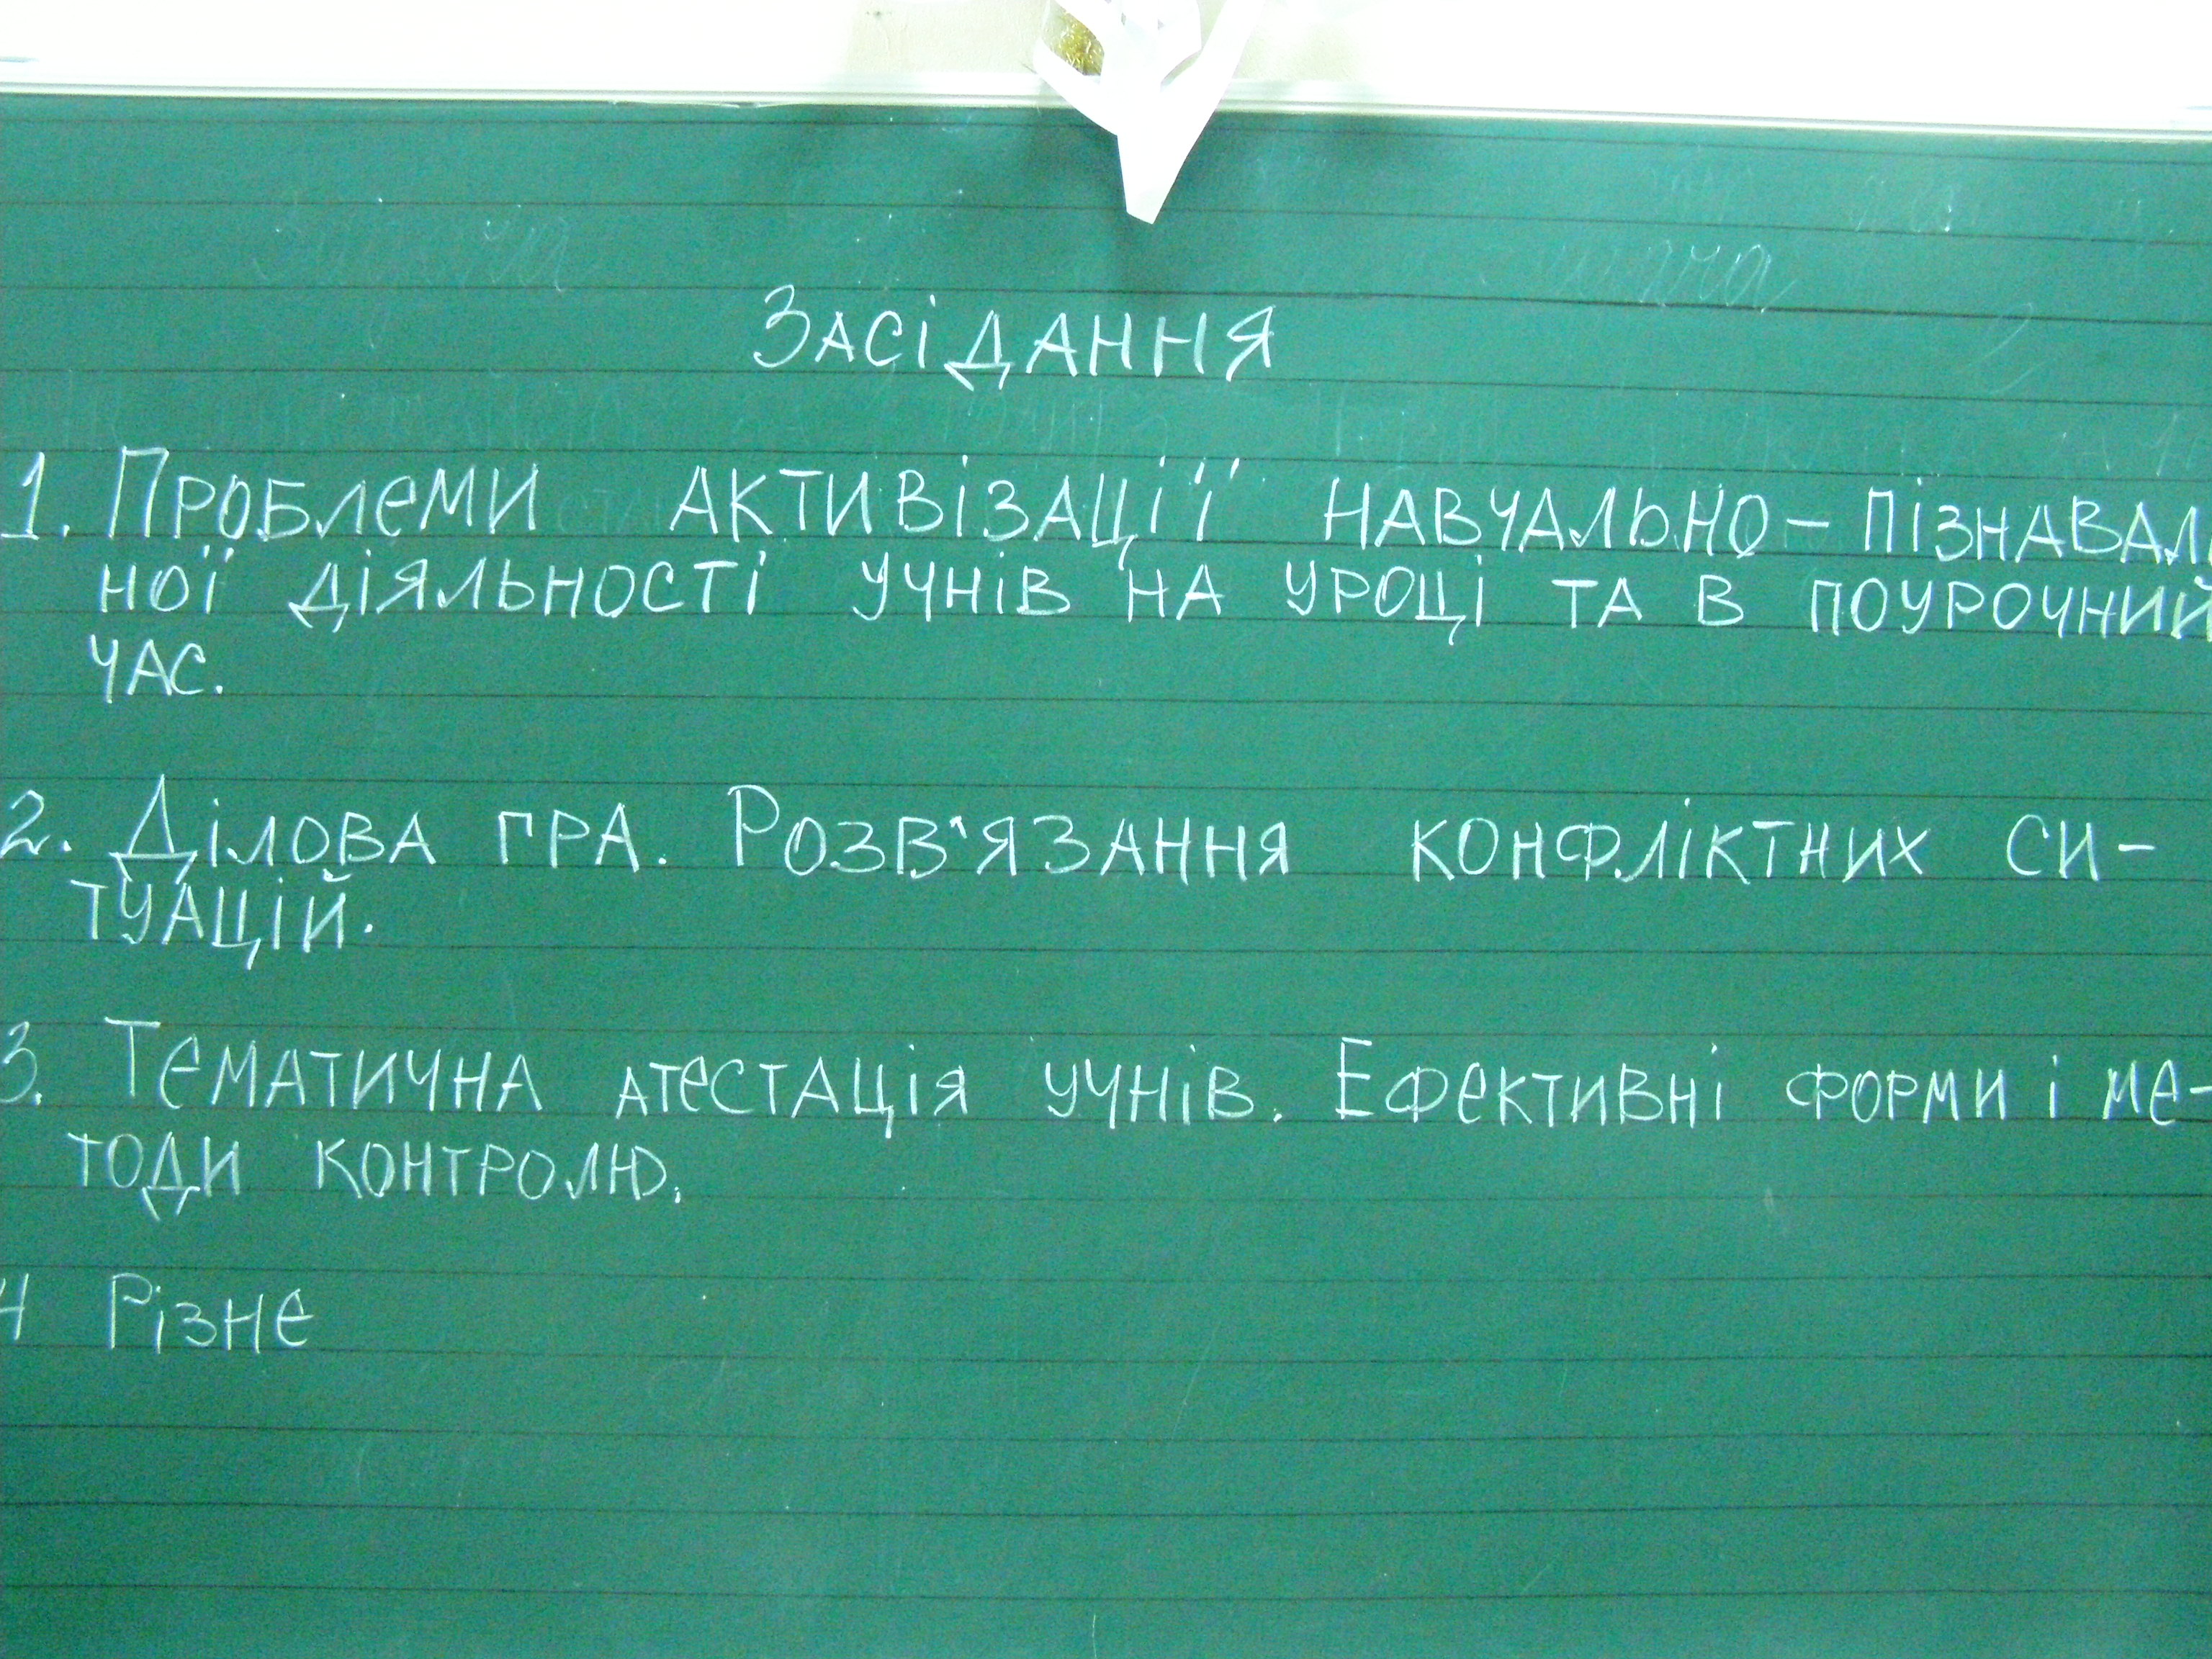 Засідання
1. Проблеми активізації навчально-пізнавал
ної діяльності учнів на уроці та в поурочний
час.
2. Ділова гра. Розв'язання конфліктних си-
туацій.
3. Тематична атестація учнів. Ефективні форми і ме-
тоди контролю.
4 Різне